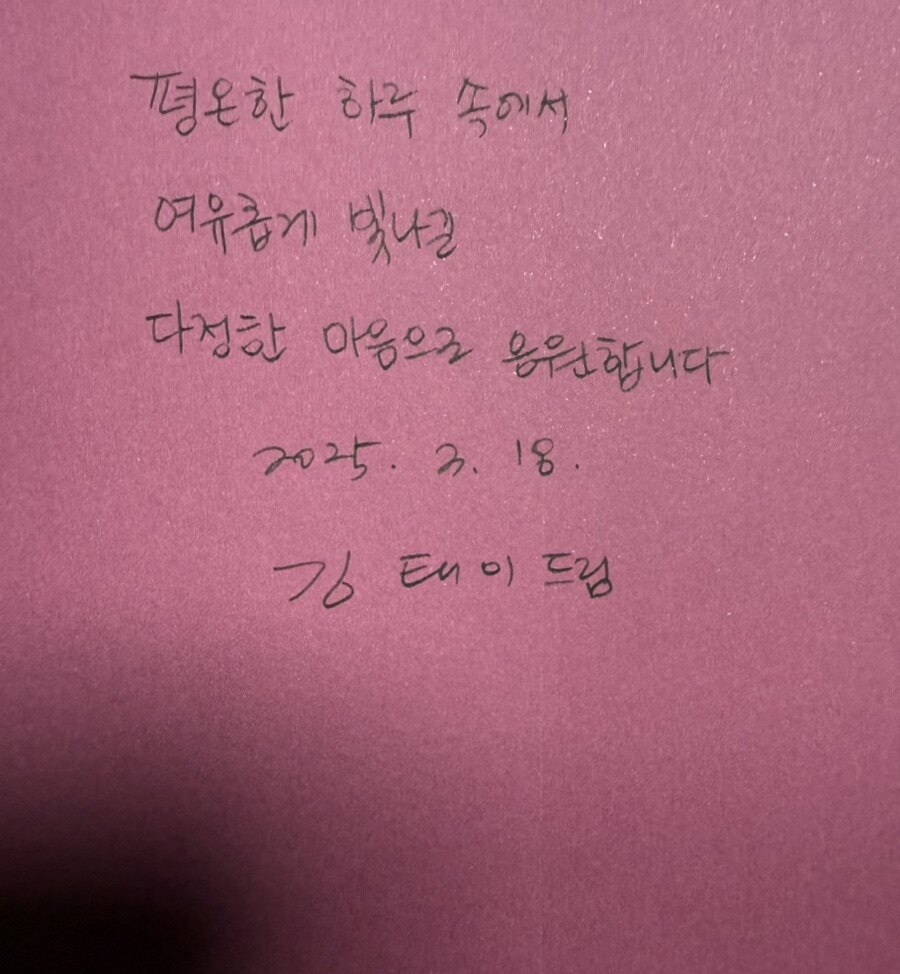 평온한 하루 속에서
여유롭게 빛나길
다정한 마음으로 응원합니다
2025. 3. 18.
김 태이 드림